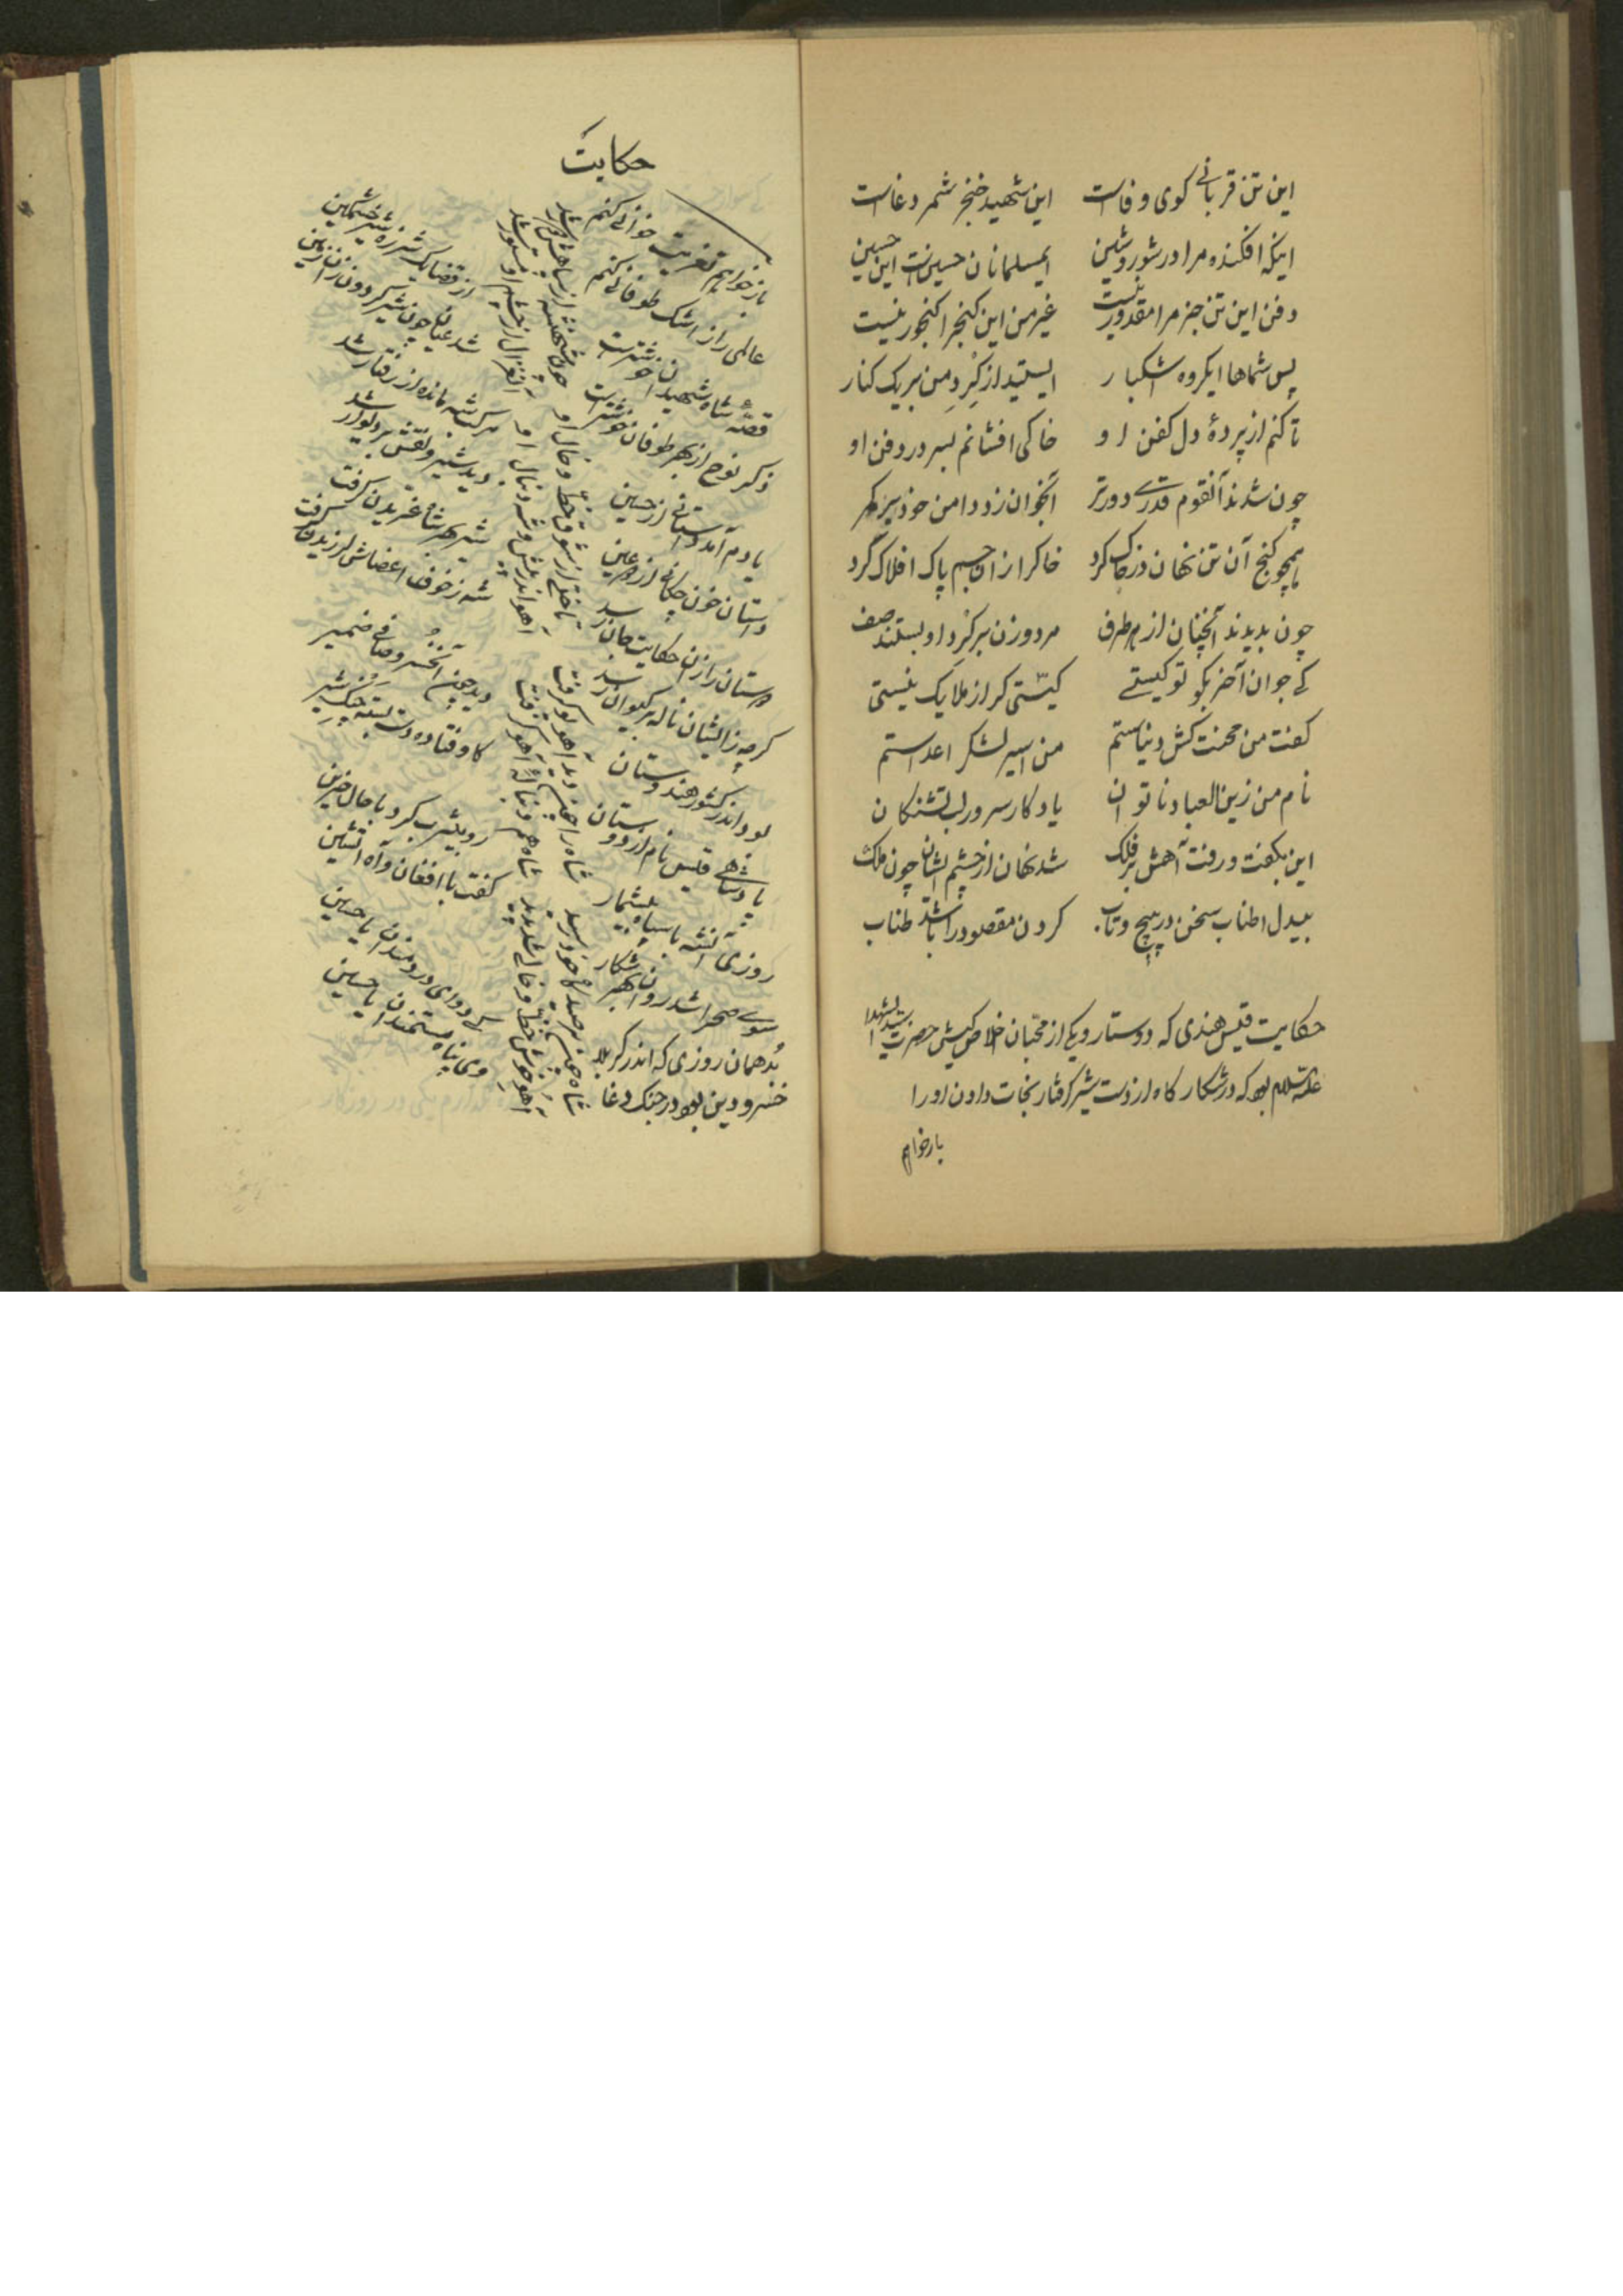 این تن قربانی کوی وفاست این شهید خنجر شمر دغاست
اینکه افکنده مرا در شور و شین ایمسلمانان حسین است این حسین
دفن این تن جز مرا مقدور نیست غیر من این کنج را کنجور نیست
پس شماها ایکروه اشکبار ایستید از کرد من بر یک کنار
تا کنم از پردهٔ دل کفن او خاکی افشانم بسر در دفن او
چون شدند آنقوم قدری دورتر آنجوان زد دامن خود بر کمر
همچو کنج آن تن نهان در خاک کرد خاکرا از آن جسم پاک افلاک کرد
چون بدیدند آنچنان از هر طرف مرد و زن بر کرد او بستند صف
کی جوان آخر بکو تو کیستی کیستی کر از ملایک نیستی
کفت من محنت کش دنیاستم من اسیر لشکر اعداستم
نام من زین العباد ناتوان یادکار سرور لب تشنکان
این بکفت و رفت آهش بر فلک شد نهان از چشم ایشان چون ملک
بیدل اطناب سخن در پیچ و تاب کردن مقصود را باشد طناب
حکایت قیس هندی که دوستار و یکی از محبان اخلاص کیش حضرت سید الشهدا
علیه السلام بود که در شکار کاه از دست شیر کرفتار نجات دادن او را
بازخواهم
حکایت
باز خواهم تعزیت خوانی کنم
عالمی را از اشک طوفانی کنم
قصهٔ شاه شهیدان خوشترست
ذکر نوح از بهر طوفان خوشترست
یادم آمد داستانی از حسین
داستان خون چکانی از دو عین
دوستان را زین حکایت جان رسد
کرچه زایشان ناله بر کیوان رسد
بود اندر کشور هندوستان
پادشاهی قیس نام از دوستان
روزی آنشه با سپاه بیشمار
سوی صحرا شد روان بهر شکار
بُد همان روزی که اندر کربلا
خسرو دین بود در جنک دغا
شاه را چشم بر صید خود رسید
آهو خوش خط و خالی شد پدید
شاه را چشم دید آهو کرفت
شاه هم دنبالهٔ آهو کرفت
تاختی از شوق خط و خال او
آهو اندر پیش و شه دنبال او
چون شهنشه از سپاهش دور شد
آنغزال از چشم او مستور شد
از قضا یک شرزه شیر خشمکین
شد عیان چون شیر کردون از زمین
مرکب شه مانده از رفتار شد
دید شیر و نقش بر دیوار شد
شیر بهر شاه غریدن کرفت
شه ز خوف اعضاش لرزیدن کرفت
دید چون آنخسرو صافی ضمیر
کاو فتاده دست بسته چنک شیر
رو بیثرب کرد با حال حزین
کفت با افغان و آه آتشین
کی دوای دردمندان یا حسین
وی پناه مستمندان یا حسین